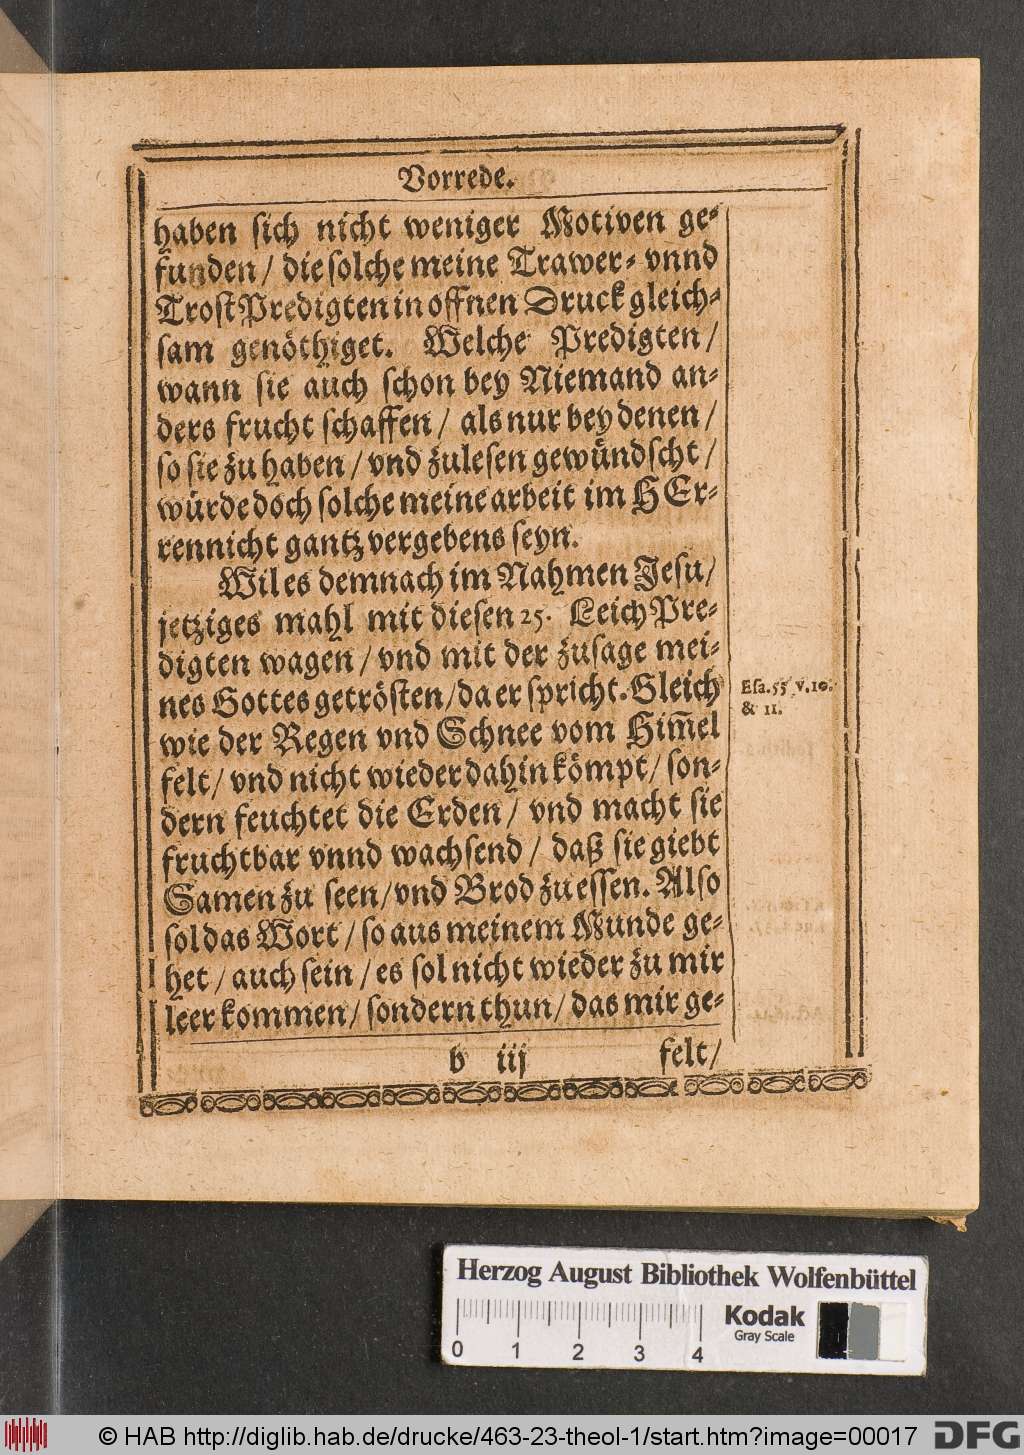 Vorrede.
haben sich nicht weniger Motiven ge-
funden / die solche meine Trawer- vnnd
TrostPredigten in offnen Druck gleich-
sam genöthiget. Welche Predigten /
wann sie auch schon bey Niemand an-
ders frucht schaffen / als nur bey denen /
so sie zu haben / vnd zulesen gewündscht /
würde doch solche meine arbeit im HEr-
ren nicht gantz vergebens seyn.
Wil es demnach im Nahmen Jesu /
jetziges mahl mit diesen 25. LeichPre-
digten wagen / vnd mit der zusage mei-
nes Gottes getrösten / da er spricht. Gleich
wie der Regen vnd Schnee vom Him̃el
felt / vnd nicht wieder dahin kömpt / son-
dern feuchtet die Erden / vnd macht sie
fruchtbar vnnd wachsend / daß sie giebt
Samen zu seen / vnd Brod zu essen. Also
sol das Wort / so aus meinem Munde ge-
het / auch sein / es sol nicht wieder zu mir
leer kommen / sondern thun / das mir ge-
Esa. 55 v. 10.
& 11.
b iij felt /
Herzog August Bibliothek Wolfenbüttel
0 1 2 3 4
Kodak
Gray Scale
© HAB http://diglib.hab.de/drucke/463-23-theol-1/start.htm?image=00017
DFG